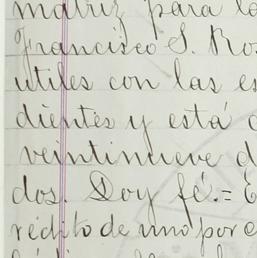 matriz para la
Francisco S. Ros
útiles con las es
dientes y está
veintinueve d
dos. Doy fé.=
rédito de uno por c